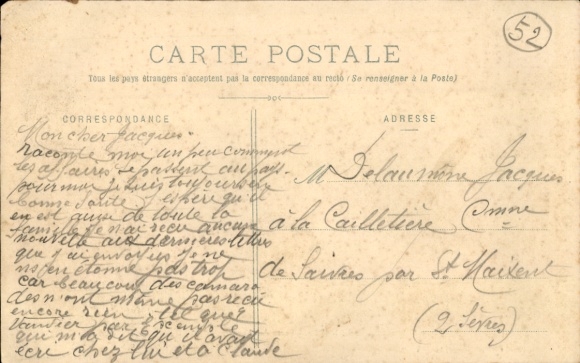 52
CARTE POSTALE
Tous les pays étrangers n'acceptent pas la correspondance au recto (Se renseigner à la Poste)
CORRESPONDANCE
Mon cher Jacques
raconte moi un peu comment
les affaires se passent au pays
pour moi je suis toujours en
bonne santé j'espère qu'il
en est ausi de toute la
famille je n'ai reçu aucune
nouvelle aux dernières lettres
que j'ai envoyés je ne
m'en étonne pas trop
car beaucoup des camara
des n'ont même pas reçu
encore rien tel que
par exemple
qui m'a dit qu'il avait
écri chez lui et à Claude
ADRESSE
M Delaumone Jacques
à la Cailletière Cmne
de Saivres par St Maixent
(2 Sèvres)